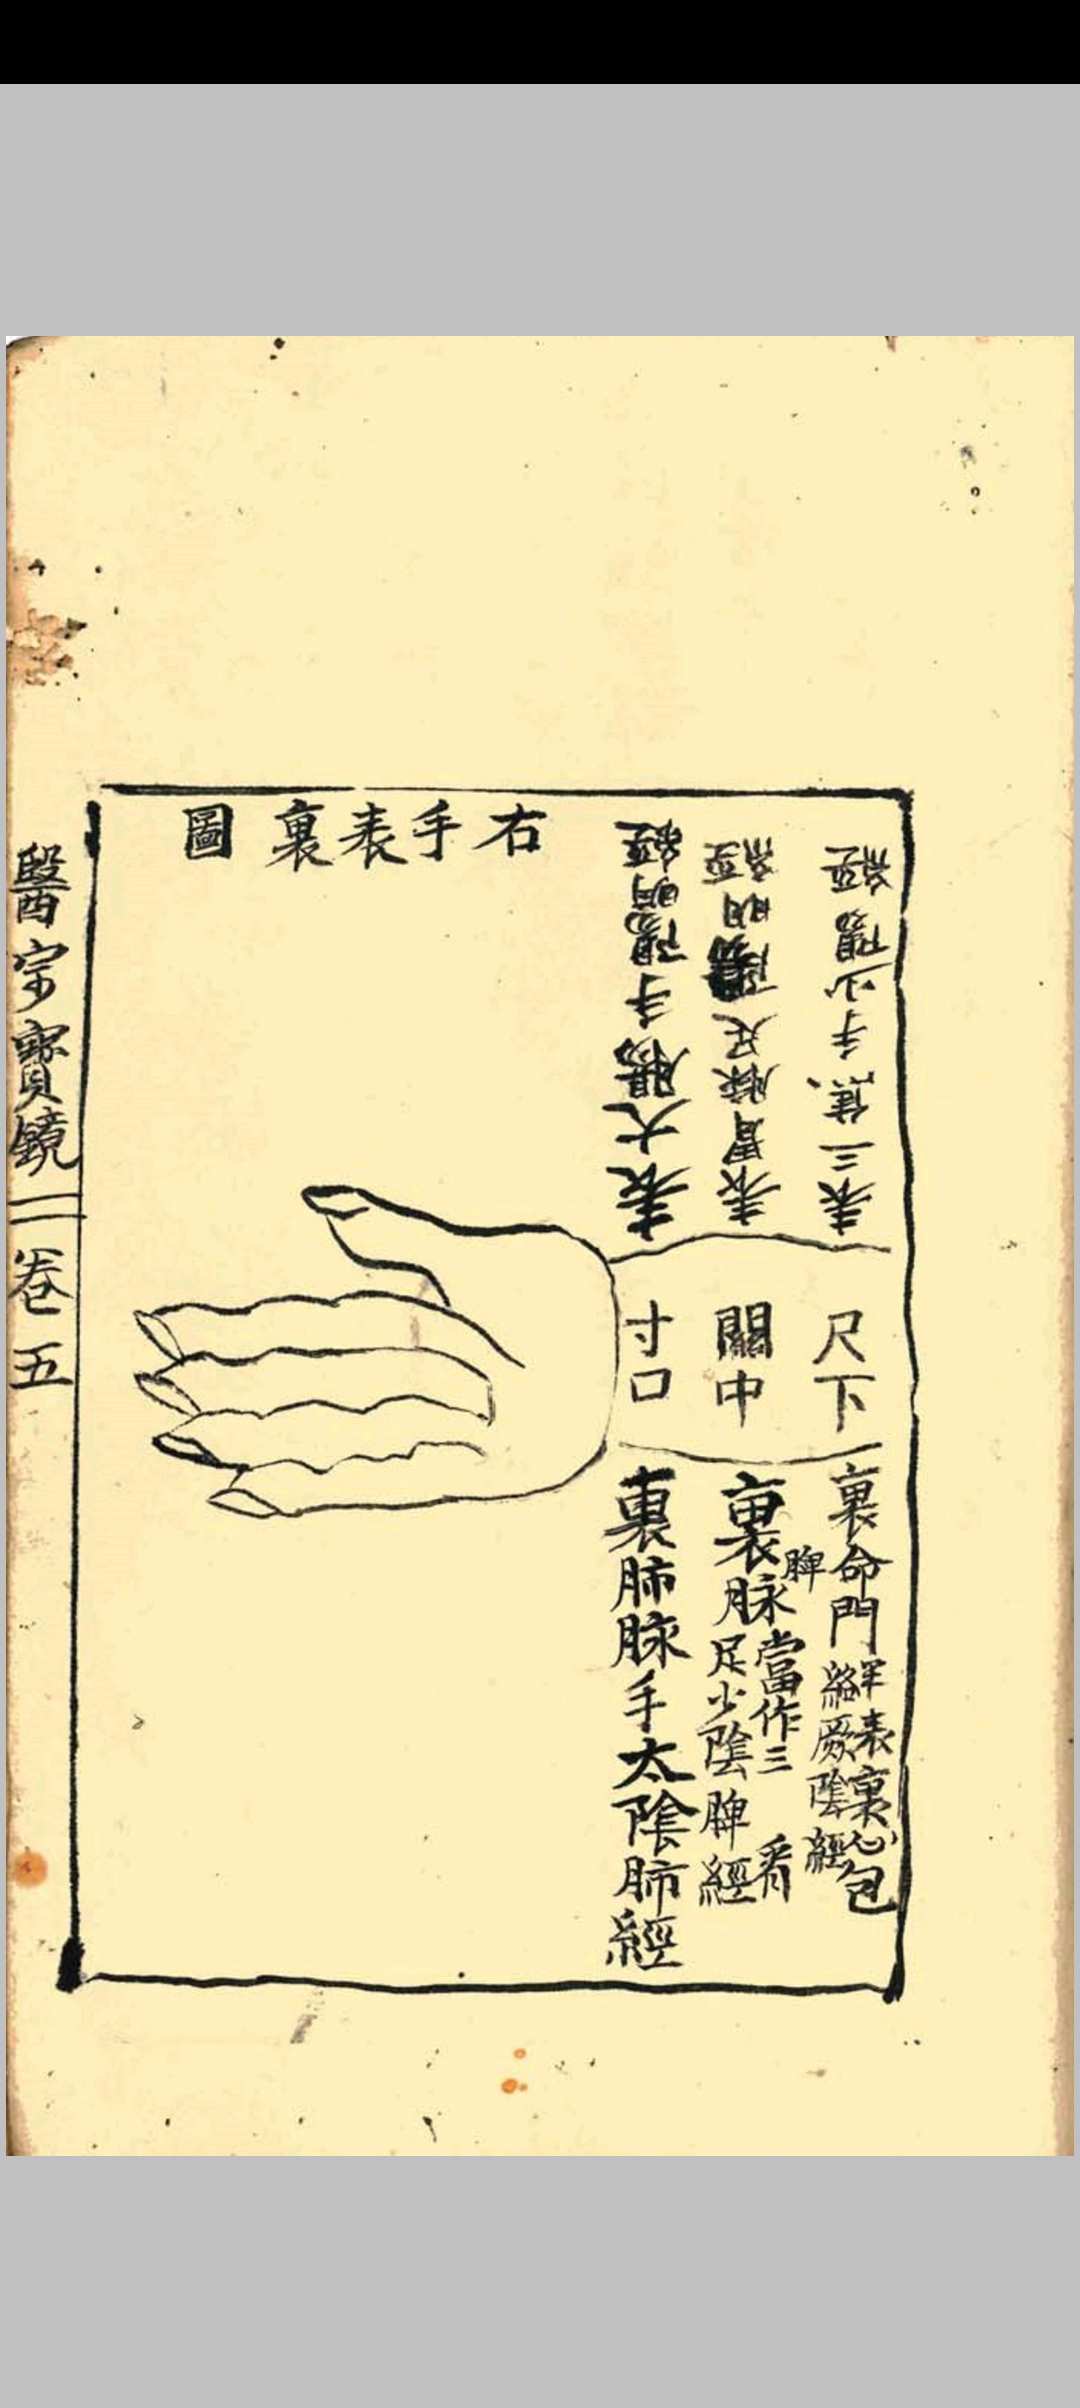 右手表裏圖
表三焦手少陽經
表胃脉足陽明經
表大腸手陽明經
尺下
關中
寸口
裏命門
表裏心包
絡厥陰經
裏脉足少陰脾經
脾
當作三
看
裏肺脉手太陰肺經
醫宗寶鏡二卷五